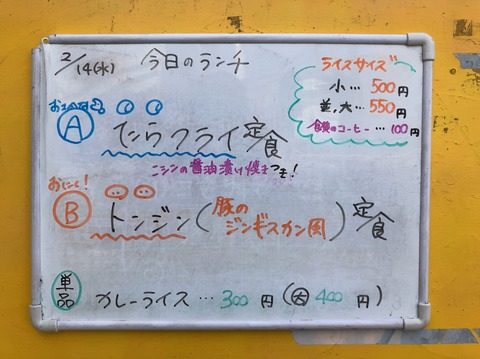 2/14(水) 今日のランチ
ライスサイズ
小… 500円
並,大… 550円
食後のコーヒー… 100円
おさかな
A たらフライ定食
ニシンの醤油漬け焼きつき!
おにく!
B トンジン(豚のジンギスカン風)定食
単品 カレーライス… 300円 (大 400円)